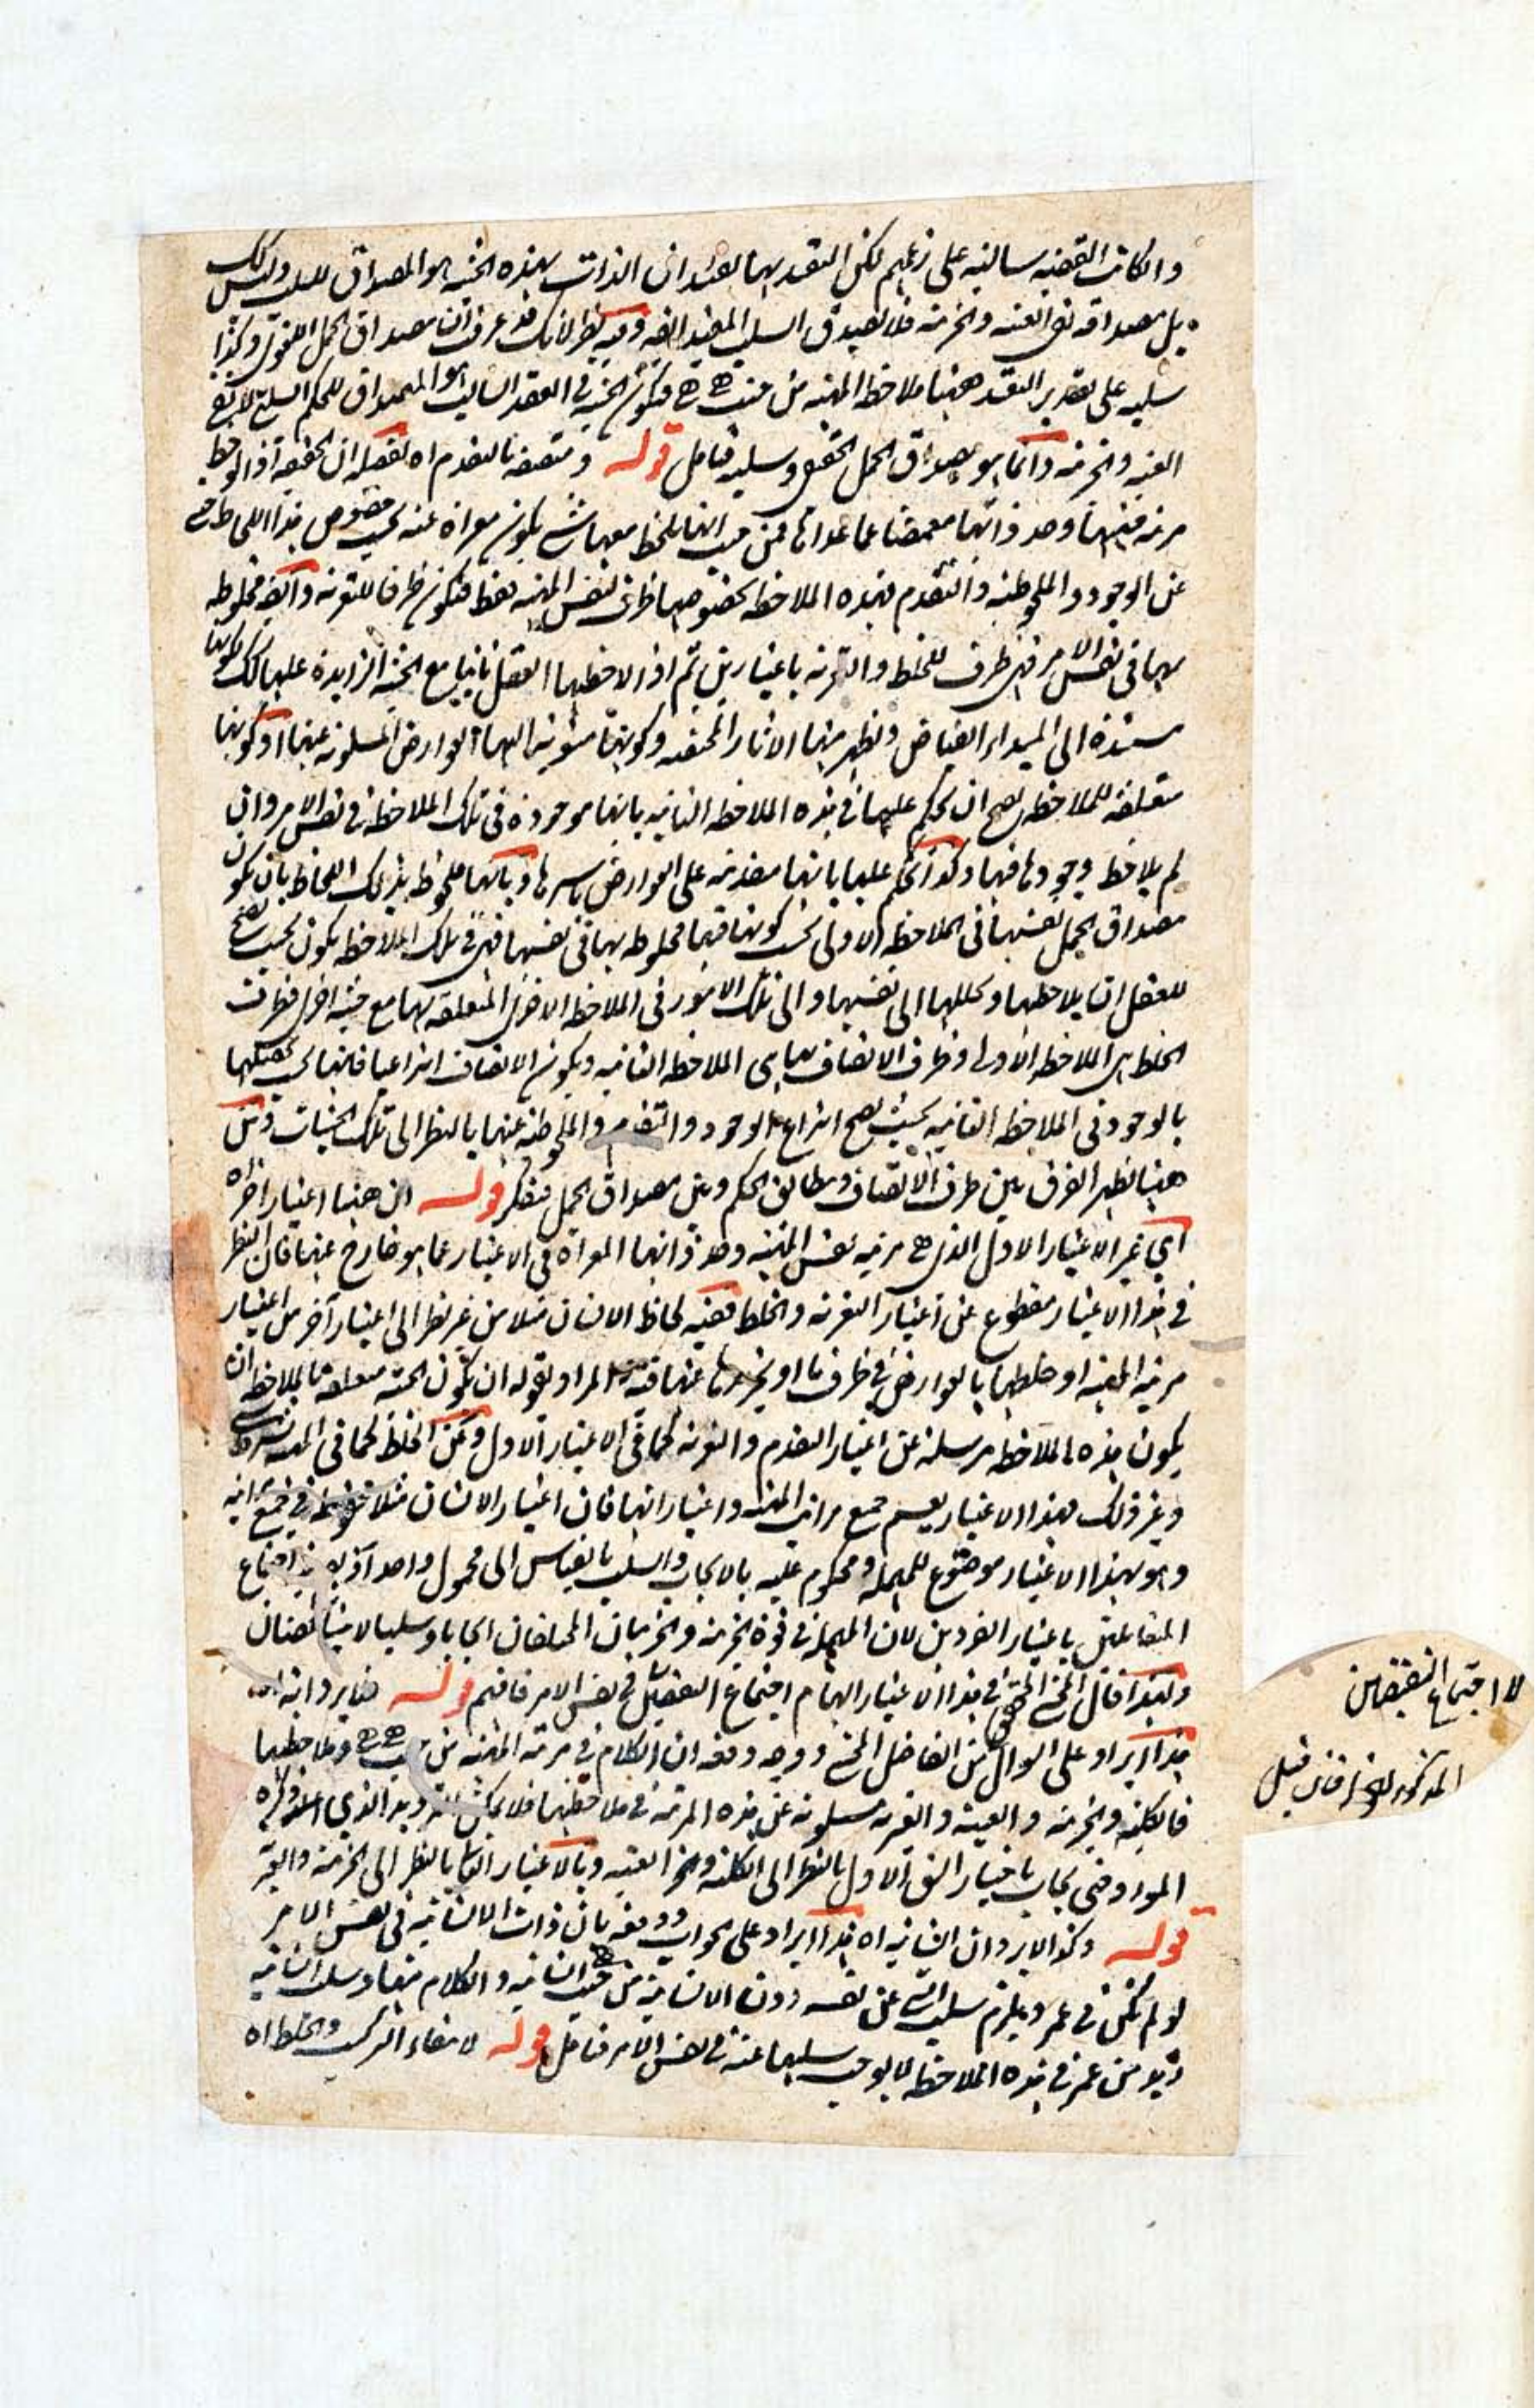 وان كانت القضيه سالبه على زعمهم لكن التقييد بهما لفيد ان الذات بهذه الحيثيه هو المصداق للسلب وليس كك
بل مصداقه نفى العينيه والجزئيه فلا لصدق السلب المقيد الضه وفيه نظر لانك قد عرفت ان مصداق الحمل اللغوى وكذا
سلبه على تقدير التقييد ههنا ملاحظه المهيه من حيث هى هى فتكون الحيثيه فى العقد السالب هو المصداق للحكم السلبى لا نفى
العينيه والجزئيه وانما هو مصداق الحمل الحقيقى وسلبه فتامل قوله ومتصفه بالتقدم اه تفصيله ان الحقيقه اذا لوحظ
مرتبه مهيتها وحد ذاتها مغمضا عما عداها فمن حيث انها لم يلحظ معها شى يكون معراة عنه بحسب خصوص هذا اللحاظ حتى
عن الوجود والملحوظيه والتقدم فهذه الملاحظه بخصوصها ظرف لنفس المهيه فقط فتكون ظرفا للتعريه والضه مخلوطه
بها فى نفس الامر فهى ظرف للخلط والتعريه باعتبارين ثم اذا لاحظها العقل ثانيا مع الحيثيه الزايده عليها ككونها
مستنده الى المبداء الفياض ونظهر منها الاثار المختصه وكونها منسوبه اليها العوارض المسلوبه عنها او كونها
متعلقه للملاحظه لصح ان يحكم عليها فى هذه الملاحظه الثانيه بانها موجوده فى تلك الملاحظه فى نفس الامر وان
لم يلاحظ وجودها فيها وكذا يحكم عليها بانها متقدمه على العوارض باسرها وبانها ملحوظ بذلك اللحاظ بان يكون
مصداق الحمل نفسها فى الملاحظه الاولى بحسب كونها فيها مخلوطه بها فى نفسها فهى فى تلك الملاحظه يكون بحيث يصح
للعقل ان يلاحظها ويحللها الى نفسها والى تلك الامور فى الملاحظه الاخرى المتعلقه بها مع حيثيه اخرى فظرف
الخلط هى الملاحظه الاولى وظرف الاتصاف بها هى الملاحظه الثانيه ويكون الاتصاف انتزاعيا فانها
بالوجود فى الملاحظه الثانيه بحيث يصح انتزاع الوجود والتقدم والملحوظيه عنها بالنظر الى تلك الحيثيات ومن
ههنا لظهر الفرق بين ظرف الاتصاف ومطابق الحكم وبين مصداق الحمل فتفكر قوله ان ههنا اعتبارا اخر اه
اى غير الاعتبار الاول الذى هى مرتبه نفس المهيه وحد ذاتها المعراة فى الاعتبار عما هو خارج عنها فان النظر
فى هذا الاعتبار مقطوع عن اعتبار التعريه والخلط ففيه لحاظ الانسان مثلا من غير نظر الى اعتبار آخر من اعتبار
مرتبه المهيه او خلطها بالعوارض فى ظرف ما او تجريدها عنها فيه المراد بقوله ان تكون الحيثيه متعلقه بالملاحظه ان
يكون هذه الملاحظه مرسله عن اعتبار التقدم والتعريه كما فى الاعتبار الاول وعن الخلط كما فى المهيه بشرط شى
وغير ذلك فهذا الاعتبار يعم جميع مراتب المهيه واعتباراتها فان اعتبار الانسان مثلا محفوظ فى جميع مراتبه
وهو بهذا الاعتبار موضوع للمهمله ومحكوم عليه بالايجاب والسلب بالقياس الى محمول واحد اذ لا يلزم اجتماع
المتقابلين باعتبار الفردين لان المهمله فى قوة الجزئيه والجزئيتان المختلفتان ايجابا وسلبا لا يتناقضان
ولهذا قال المحشى المحقق فى هذا الاعتبار ايهام اجتماع النقيضين فى نفس الامر فافهم قوله فما يرد انه اه
هذا ايراد على السوال من الفاضل المحشى ووجه دفعه ان الكلام فى مرتبه المهيه من حيث هى هى وملاحظتها
فالكليه والجزئيه والعينيه والغيريه مسلوبه عن هذه المرتبه فى ملاحظتها فلا يمكن الترديد الذى ذكره
المورد حتى يجاب باختيار الشق الاول بالنظر الى الكليه والعينيه وبالاعتبار الثانى بالنظر الى الجزئيه والغيريه
قوله وكذا لا يرد ان الشانيه اه هذا ايراد على الجواب ودفعه بان ذات الانسانيه فى نفس الامر
لو لم تكن فى عمرو يلزم سلب الشى عن نفسه دون الانسانيه من حيث هى انسانيه والكلام فيها وسلب انسانيه
زيد من عمرو فى هذه الملاحظه لا يوجب سلبها عنه فى نفس الامر فتامل قوله لانتفاء التركيب والخلط اه
لا اجتماع النقيضين
المذكور للجز فان قيل